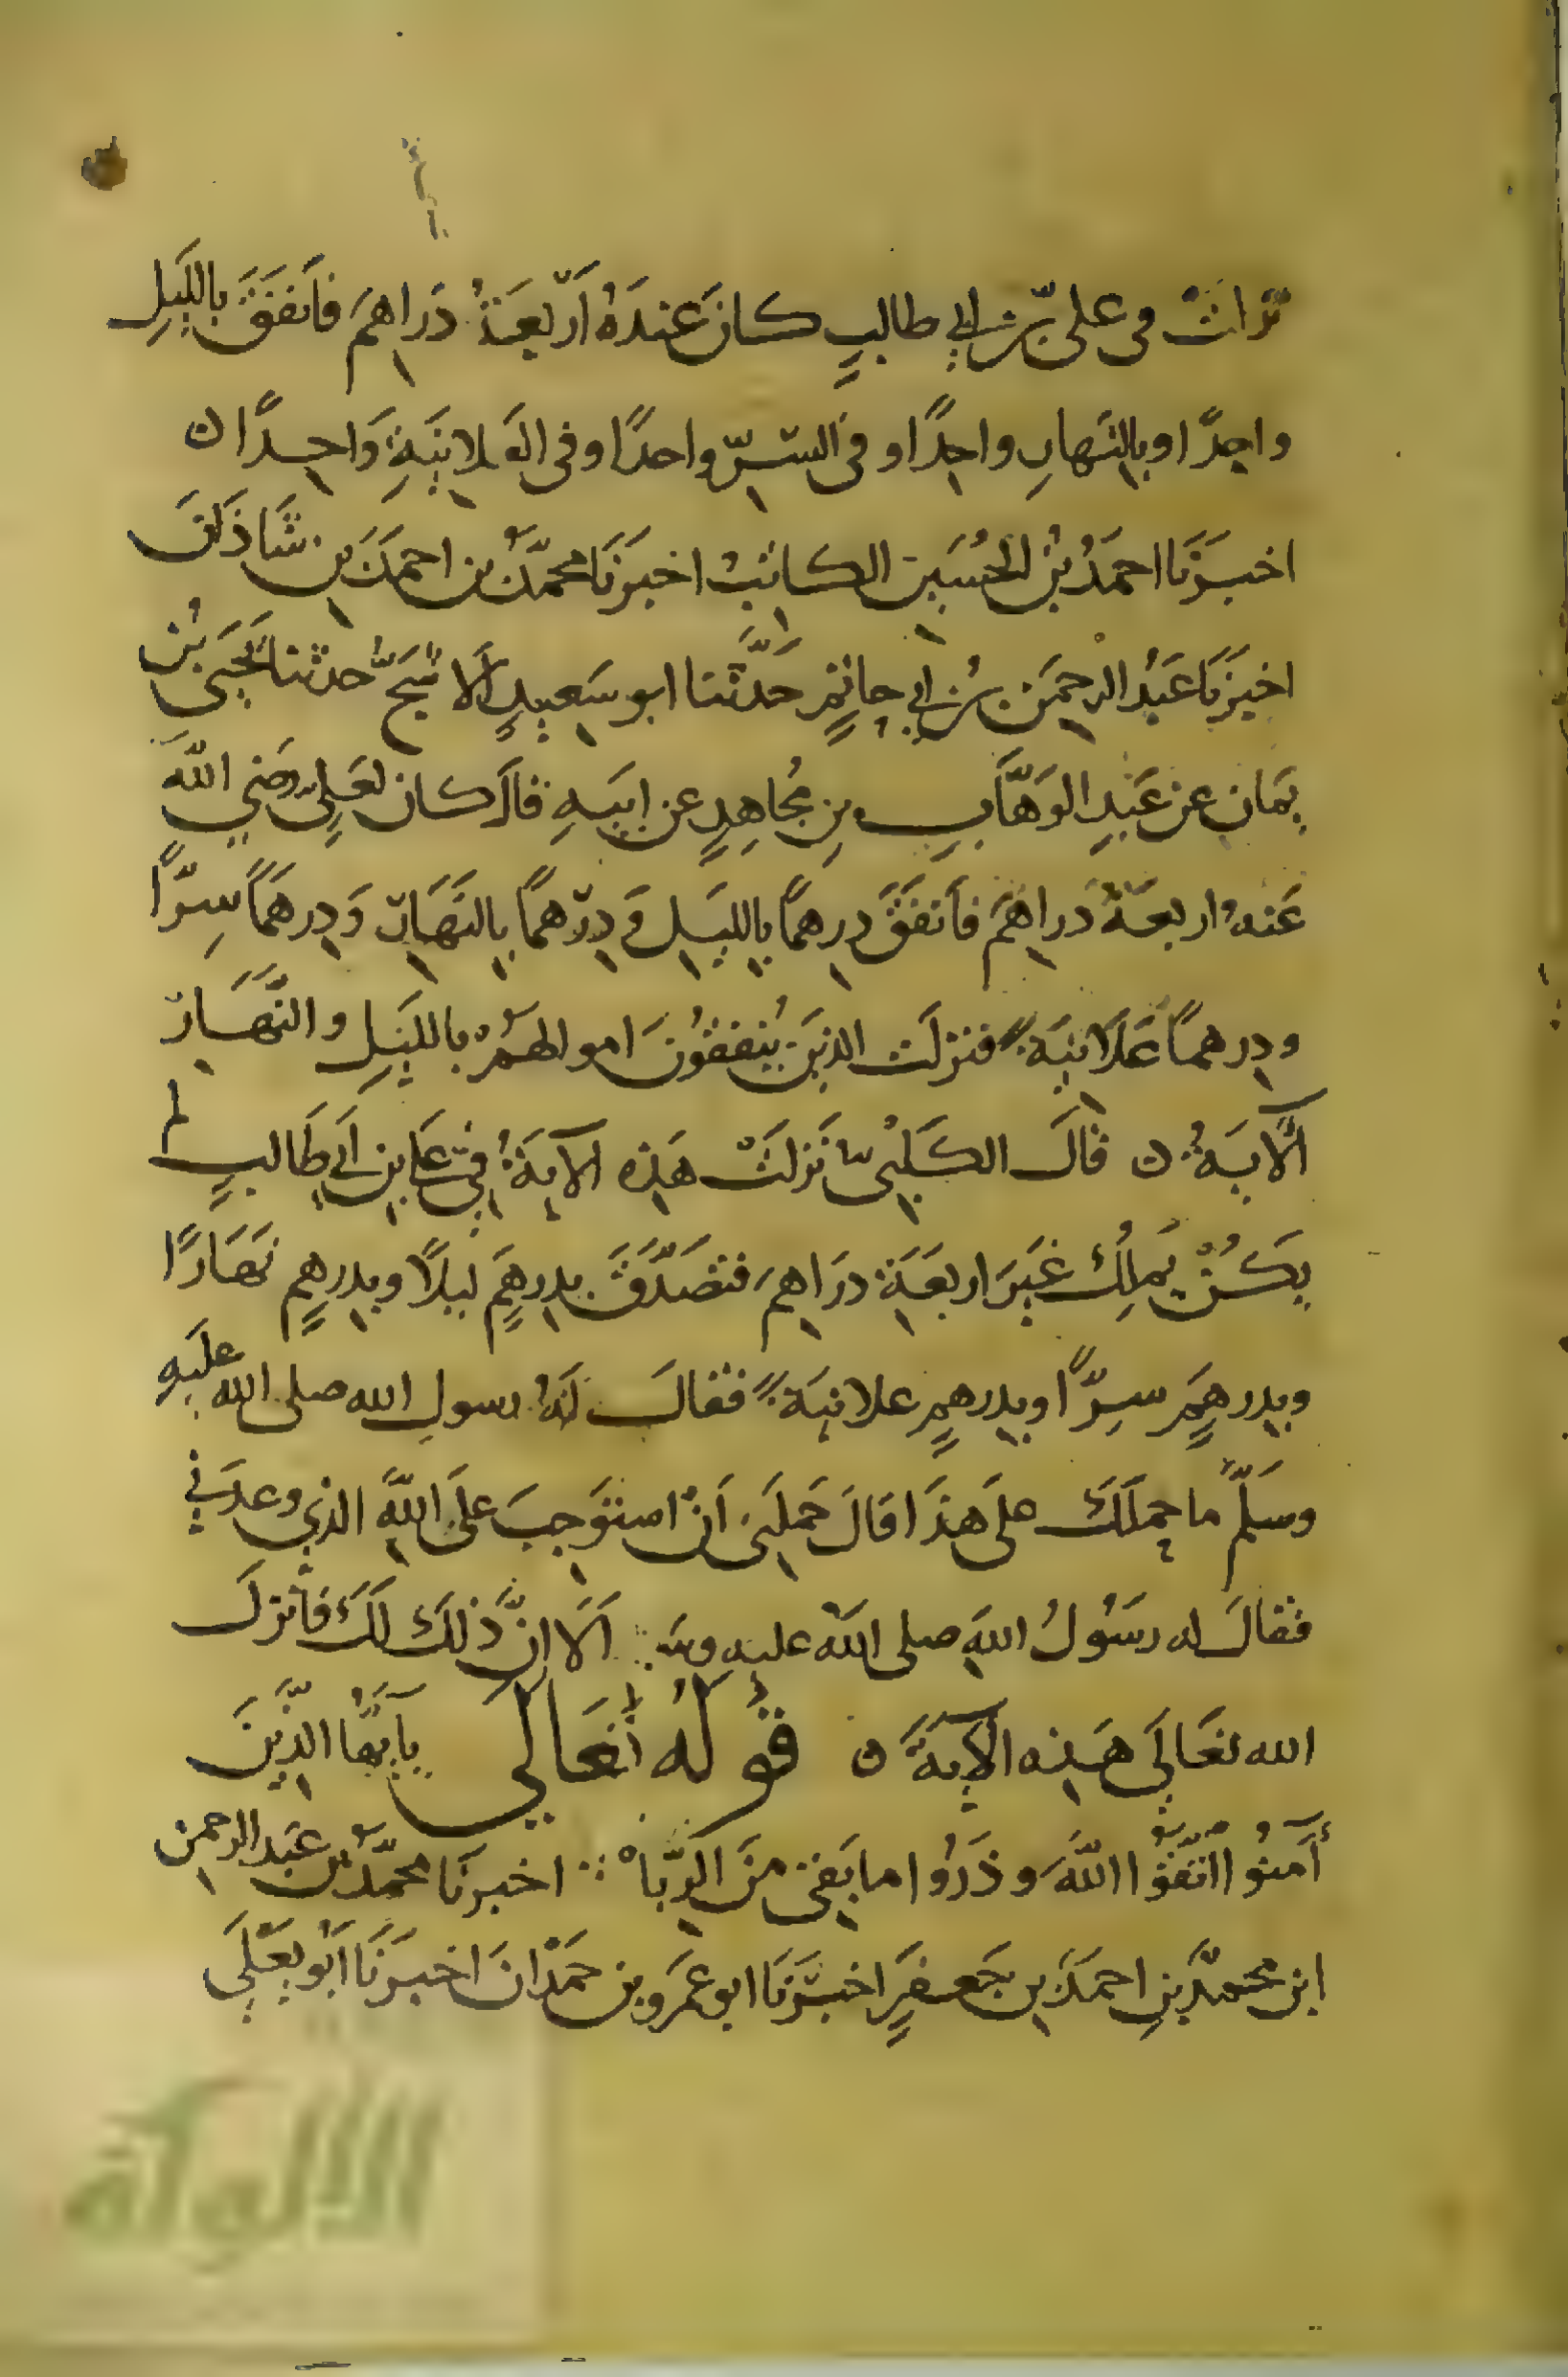 نزلت في علي بن ابي طالبٍ كانَ عندَهُ اَربعَةُ دَراهمَ فاَنفَقَ بالليَلِ
واحِدًا وبالنَهارِ واحِدًا وفى السّرّ واحدًا وفى العَلانيَةِ وَاحِدًا ن
اخبَرَنَا احمَدُ بْنُ الحُسَين الكاتبُ اخبَرَنَا محمَّدُ بن احمَدَ بن شَاذَان
اخبَرَنَا عَبْدُ الرحمَن بنُ ابي حاتمٍ حَدَّثنا ابو سَعيدٍ اَلاشَجُّ حدثنا يَحيَى بْن
يَمَانٍ عن عَبْدِ الوَهَّابِ بنِ مُجَاهِدٍ عن ابيَهِ قالَ كان لعَلِىٍّ رضي اللهُ
عَنهُ اربعةُ دَراهمَ فاَنفَقَ دِرهمًا بالليَلِ وَدِرْهمًا بالنَهَارِ وَدِرهَمًا سِرًّا
ودِرهمًا عَلَانيَةً فنزلَت الذينَ يُنفقُونَ اموالهُمْ بالليَلِ والنَّهَارِ
الْآيَةُ ن قالَ الكَلْبىُّ نَزلَتْ هَذِه الآيَةُ فِى عَلي بن اَبي طَالبٍ لم
يَكُنْ يَملِكُ غَيَرَ اربعَةِ درَاهِمَ فتصَدَّقَ بدِرهَمٍ ليلًا وبدِرهمٍ نَهَارًا
وبدِرهَمٍ سِرًّا وبدِرهمٍ علانيَةً فقالَ لَهُ رسول الله صلى الله عليَهِ
وسَلَّمَ ما حملَكَ علَى هذَا قالَ حَملَنى اَنْ استَوجبَ علَى اللَّهِ الذي وعدَنِي
فقالَ له رسَولُ اللهِ صلى اللهُ عليهِ وسَلم اَلَا اِنَّ ذلكَ لَكَ فأنزلَ
الله تعَالَى هَذِه الآيَةَ ن قَوْلُهُ تَعَالَى يآيهَا الذِّينَ
آمنُوا اتَّقُوا اللَّهَ وذَرُوا ما بَقِىَ مِنَ الرِّبَا اخبرنَا محمَّدُ بن عَبدالرحمن
ابن محمدِ بنِ احمدَ بن جَعفَرٍ اخبَرَنَا ابو عَمرو بن حمَدانَ اخبَرَنَا اَبُو يَعْلَى
الألوكة